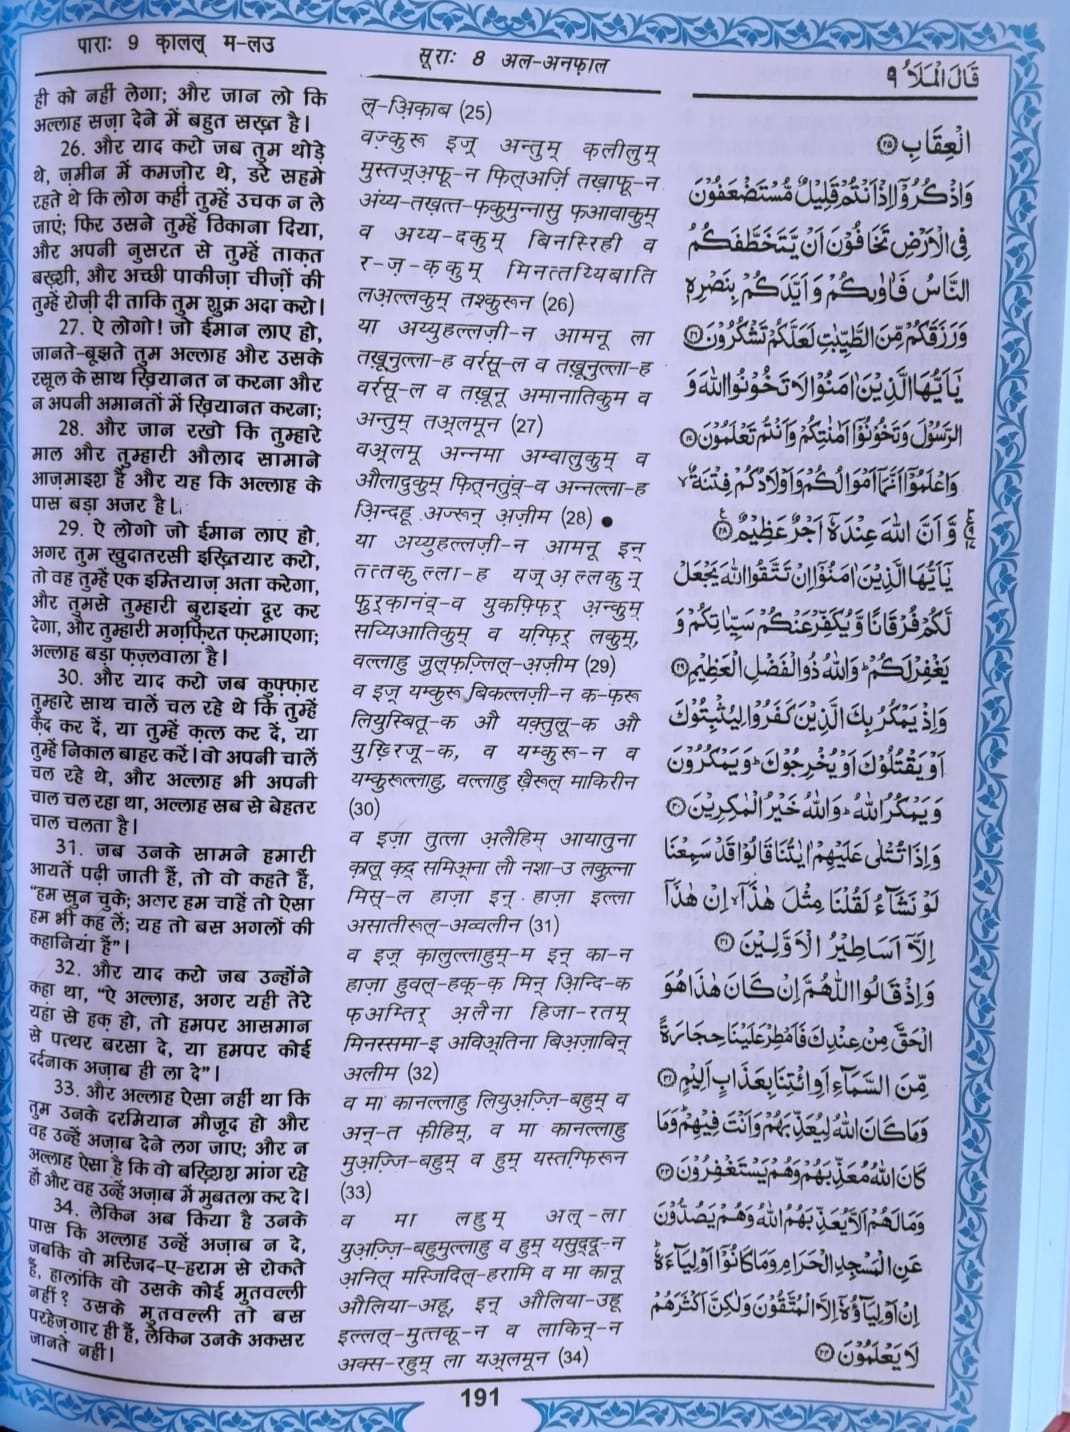 पाराः 9 क़ालल् म-लउ
सूराः 8 अल-अनफ़ाल
قَالَ الْمَلَاُ ٩
ही को नहीं लेगा; और जान लो कि
अल्लाह सज़ा देने में बहुत सख़्त है।
26. और याद करो जब तुम थोड़े
थे, ज़मीन में कमज़ोर थे, डरे सहमे
रहते थे कि लोग कहीं तुम्हें उचक न ले
जाएं; फिर उसने तुम्हें ठिकाना दिया,
और अपनी नुसरत से तुम्हें ताक़त
बख़्शी, और अच्छी पाकीज़ा चीज़ों की
तुम्हें रोज़ी दी ताकि तुम शुक्र अदा करो।
27. ऐ लोगो! जो ईमान लाए हो,
जानते-बूझते तुम अल्लाह और उसके
रसूल के साथ ख़ियानत न करना और
न अपनी अमानतों में ख़ियानत करना;
28. और जान रखो कि तुम्हारे
माल और तुम्हारी औलाद सामाने
आज़माइश हैं और यह कि अल्लाह के
पास बड़ा अजर है।
29. ऐ लोगो जो ईमान लाए हो,
अगर तुम ख़ुदातरसी इख़्तियार करो,
तो वह तुम्हें एक इम्तियाज़ अता करेगा,
और तुमसे तुम्हारी बुराइयां दूर कर
देगा, और तुम्हारी मग़फ़िरत फ़रमाएगा;
अल्लाह बड़ा फ़ज़्लवाला है।
30. और याद करो जब कुफ़्फ़ार
तुम्हारे साथ चालें चल रहे थे कि तुम्हें
क़ैद कर दें, या तुम्हें क़त्ल कर दें, या
तुम्हें निकाल बाहर करें। वो अपनी चालें
चल रहे थे, और अल्लाह भी अपनी
चाल चल रहा था, अल्लाह सब से बेहतर
चाल चलता है।
31. जब उनके सामने हमारी
आयतें पढ़ी जाती हैं, तो वो कहते हैं,
“हम सुन चुके; अगर हम चाहें तो ऐसा
हम भी कह लें; यह तो बस अगलों की
कहानियां हैं”।
32. और याद करो जब उन्होंने
कहा था, “ऐ अल्लाह, अगर यही तेरे
यहां से हक़ हो, तो हमपर आसमान
से पत्थर बरसा दे, या हमपर कोई
दर्दनाक अज़ाब ही ला दे”।
33. और अल्लाह ऐसा नहीं था कि
तुम उनके दरमियान मौजूद हो और
वह उन्हें अज़ाब देने लग जाए; और न
अल्लाह ऐसा है कि वो बख़्शिश मांग रहे
हों और वह उन्हें अज़ाब में मुबतला कर दे।
34. लेकिन अब किया है उनके
पास कि अल्लाह उन्हें अज़ाब न दे,
जबकि वो मस्जिद-ए-हराम से रोकते
हैं, हालांकि वो उसके कोई मुतवल्ली
नहीं? उसके मुतवल्ली तो बस
परहेज़गार ही हैं, लेकिन उनके अकसर
जानते नहीं।
ल्-अ़िक़ाब (25)
वज़्कुरू इज़् अन्तुम् क़लीलुम्
मुस्तज़्अफू-न फ़िल्अर्ज़ि तख़ाफ़ू-न
अंय्य-तख़त्त-फ़कुमुन्नासु फ़आवाकुम्
व अय्य-दकुम् बिनस्रिही व
र-ज़-क़-कुम् मिनत्तय्यिबाति
लअ़ल्लकुम् तश्कुरून (26)
या अय्युहल्लज़ी-न आमनू ला
तख़ूनुल्ला-ह वर्रसू-ल व तख़ूनुल्ला-ह
वर्रसू-ल व तख़ूनू अमानातिकुम व
अन्तुम् तअ़्लमून (27)
वअ़्लमू अन्नमा अम्वालुकुम् व
औलादुकुम् फ़ित्नतुंव्-व अन्नल्ला-ह
अ़िन्दहू अज्रुन् अ़ज़ीम (28) ●
या अय्युहल्लज़ी-न आमनू इन्
तत्तक़ुल्ला-ह यज्अ़ल्लकुन्
फ़ुर्क़ानंव्-व युकफ़्फ़िर् अ़न्कुम्
सय्यिआतिकुम् व यग़्फ़िर् लकुम्,
वल्लाहु जुल्फ़ज़्लिल्-अ़ज़ीम (29)
व इज़् यम्कुरू बिकल्लज़ी-न क-फ़रू
लियुस्बितू-क औ यक़्तुलू-क औ
युख़्रिजू-क, व यम्कुरू-न व
यम्कुरूल्लाहु, वल्लाहु ख़ैरूल् माकिरीन
(30)
व इज़ा तुत्ला अ़लैहिम् आयातुना
क़ालू क़द् समिअ़्ना लौ नशा-उ लक़ुल्ना
मिस्-ल हाज़ा इन् हाज़ा इल्ला
असातीरूल्-अव्वलीन (31)
व इज़् क़ालुल्लाहुम्-म इन् का-न
हाज़ा हुवल्-हक़्-क़ मिन् अ़िन्दि-क
फ़अम्तिर् अ़लैना हिजा-रतम्
मिनस्समा-इ अविअ्तिना बिअ़ज़ाबिन्
अलीम (32)
व मा कानल्लाहु लियुअ़ज़्ज़ि-बहुम् व
अन्-त फ़ीहिम्, व मा कानल्लाहु
मुअ़ज़्ज़ि-बहुम् व हुम् यस्तग़्फ़िरून
(33)
व मा लहुम् अल्-ला
युअ़ज़्ज़ि-बहुमुल्लाहु व हुम् यसुद्दू-न
अ़निल् मस्जिदिल्-हरामि व मा कानू
औलिया-अहू, इन् औलिया-उहू
इल्लल्-मुत्तक़ू-न व लाकिन्-न
अक्स-रहुम् ला यअ़्लमून (34)
الْعِقَابِ ۝٢٥
وَاذْكُرُوْٓا اِذْ اَنْتُمْ قَلِيْلٌ مُّسْتَضْعَفُوْنَ
فِى الْاَرْضِ تَخَافُوْنَ اَنْ يَّتَخَطَّفَكُمُ
النَّاسُ فَاٰوٰىكُمْ وَاَيَّدَكُمْ بِنَصْرِهٖ
وَرَزَقَكُمْ مِّنَ الطَّيِّبٰتِ لَعَلَّكُمْ تَشْكُرُوْنَ ۝٢٦
يٰٓاَيُّهَا الَّذِيْنَ اٰمَنُوْا لَا تَخُوْنُوا اللّٰهَ وَ
الرَّسُوْلَ وَتَخُوْنُوْٓا اَمٰنٰتِكُمْ وَاَنْتُمْ تَعْلَمُوْنَ ۝٢٧
وَاعْلَمُوْٓا اَنَّمَآ اَمْوَالُكُمْ وَاَوْلَادُكُمْ فِتْنَةٌ ۙ
وَّاَنَّ اللّٰهَ عِنْدَهٗٓ اَجْرٌ عَظِيْمٌ ۝٢٨
يٰٓاَيُّهَا الَّذِيْنَ اٰمَنُوْٓا اِنْ تَتَّقُوا اللّٰهَ يَجْعَلْ
لَّكُمْ فُرْقَانًا وَّيُكَفِّرْ عَنْكُمْ سَيِّاٰتِكُمْ وَ
يَغْفِرْ لَكُمْ ؕ وَاللّٰهُ ذُو الْفَضْلِ الْعَظِيْمِ ۝٢٩
وَاِذْ يَمْكُرُ بِكَ الَّذِيْنَ كَفَرُوْا لِيُثْبِتُوْكَ
اَوْ يَقْتُلُوْكَ اَوْ يُخْرِجُوْكَ ؕ وَيَمْكُرُوْنَ
وَيَمْكُرُ اللّٰهُ ؕ وَاللّٰهُ خَيْرُ الْمٰكِرِيْنَ ۝٣٠
وَاِذَا تُتْلٰى عَلَيْهِمْ اٰيٰتُنَا قَالُوْا قَدْ سَمِعْنَا
لَوْ نَشَآءُ لَقُلْنَا مِثْلَ هٰذَآ ۙ اِنْ هٰذَآ
اِلَّآ اَسَاطِيْرُ الْاَوَّلِيْنَ ۝٣١
وَاِذْ قَالُوا اللّٰهُمَّ اِنْ كَانَ هٰذَا هُوَ
الْحَقَّ مِنْ عِنْدِكَ فَاَمْطِرْ عَلَيْنَا حِجَارَةً
مِّنَ السَّمَآءِ اَوِ ائْتِنَا بِعَذَابٍ اَلِيْمٍ ۝٣٢
وَمَا كَانَ اللّٰهُ لِيُعَذِّبَهُمْ وَاَنْتَ فِيْهِمْ ؕ وَمَا
كَانَ اللّٰهُ مُعَذِّبَهُمْ وَهُمْ يَسْتَغْفِرُوْنَ ۝٣٣
وَمَا لَهُمْ اَلَّا يُعَذِّبَهُمُ اللّٰهُ وَهُمْ يَصُدُّوْنَ
عَنِ الْمَسْجِدِ الْحَرَامِ وَمَا كَانُوْٓا اَوْلِيَآءَهٗ ؕ
اِنْ اَوْلِيَآؤُهٗٓ اِلَّا الْمُتَّقُوْنَ وَلٰكِنَّ اَكْثَرَهُمْ
لَا يَعْلَمُوْنَ ۝٣٤
191